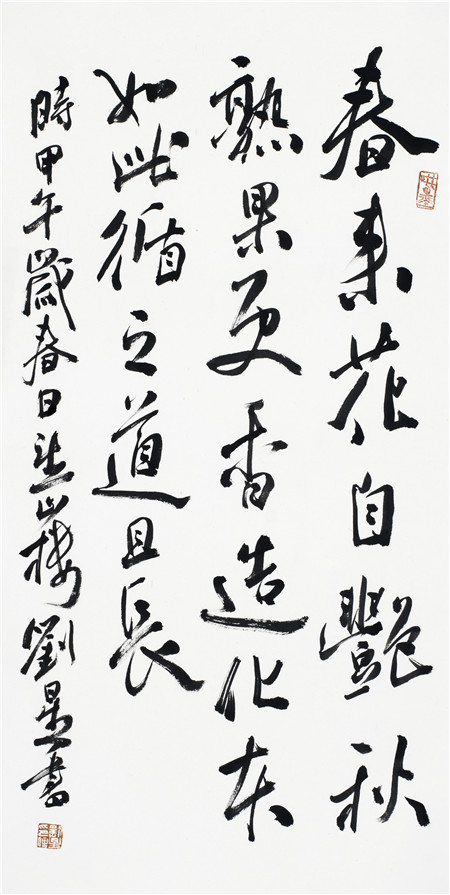 春来花自艷秋
熟果更香造化本
如此循之道且長
時甲午歲春日山樓劉書